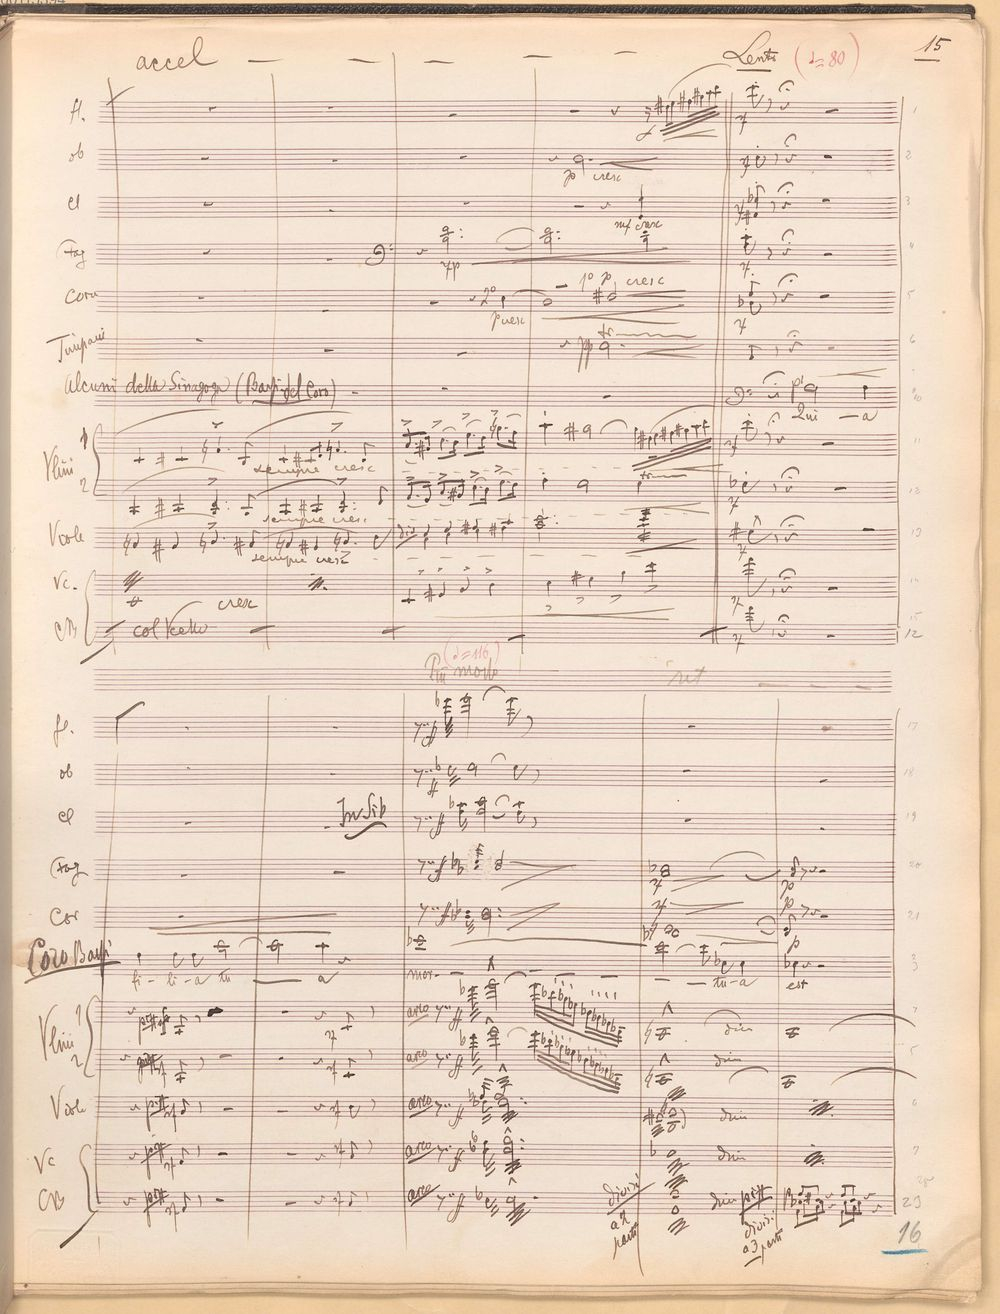 accel — — — — — Lento (♩=80) 15
fl.
ob
p cresc
cl
mf cresc
Fag
Corni
2º 1º p cresc
p cresc
Timpani
tr
pp
Alcuni della Sinagoga (Bassi del Coro)
Qui — a
Vlini 1
2
sempre cresc
sempre cresc
Viole
sempre cresc
Vc.
cresc
CB col Vcello
12
(♩=116)
Più mosso rit
fl.
ob
ff
cl In Sib
ff
Fag
ff
Cor
p
Coro Bassi
fi - li - a tu — a mor - — — — tu - a est
Vlini 1
2
arco ff dim
arco ff dim
Viole
arco ff dim
Vc
arco ff dim
CB
arco ff divisi a 2 parti dim pizz divisi a 3 parti
23
16